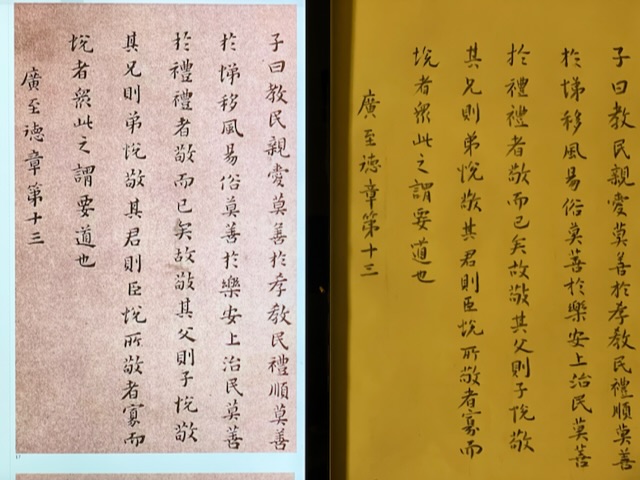 子曰教民親愛莫善於孝教民禮順莫善
於悌移風易俗莫善於樂安上治民莫善
於禮禮者敬而已矣故敬其父則子悅敬
其兄則弟悅敬其君則臣悅所敬者寡而
悅者衆此之謂要道也
廣至德章第十三
17
子曰教民親愛莫善於孝教民禮順莫善
於悌移風易俗莫善於樂安上治民莫善
於禮禮者敬而已矣故敬其父則子悅敬
其兄則弟悅敬其君則臣悅所敬者寡而
悅者衆此之謂要道也
廣至德章第十三